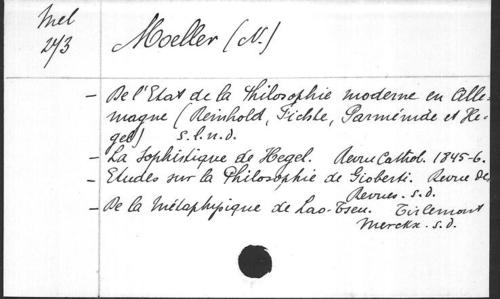 Mel
273
Moeller (N.)
- De l'Etat de la Philosophie moderne en Alle-
magne (Reinhold, Fichte, Parménide et He-
gel) s.l.n.d.
- La Sophistique de Hegel. Revue Cathol. 1845-6.
- Etudes sur la Philosophie de Gioberti. Revue des
Revues. s.d.
- De la Métaphysique de Lao-Tseu. Tirlemont
Merckx. s.d.